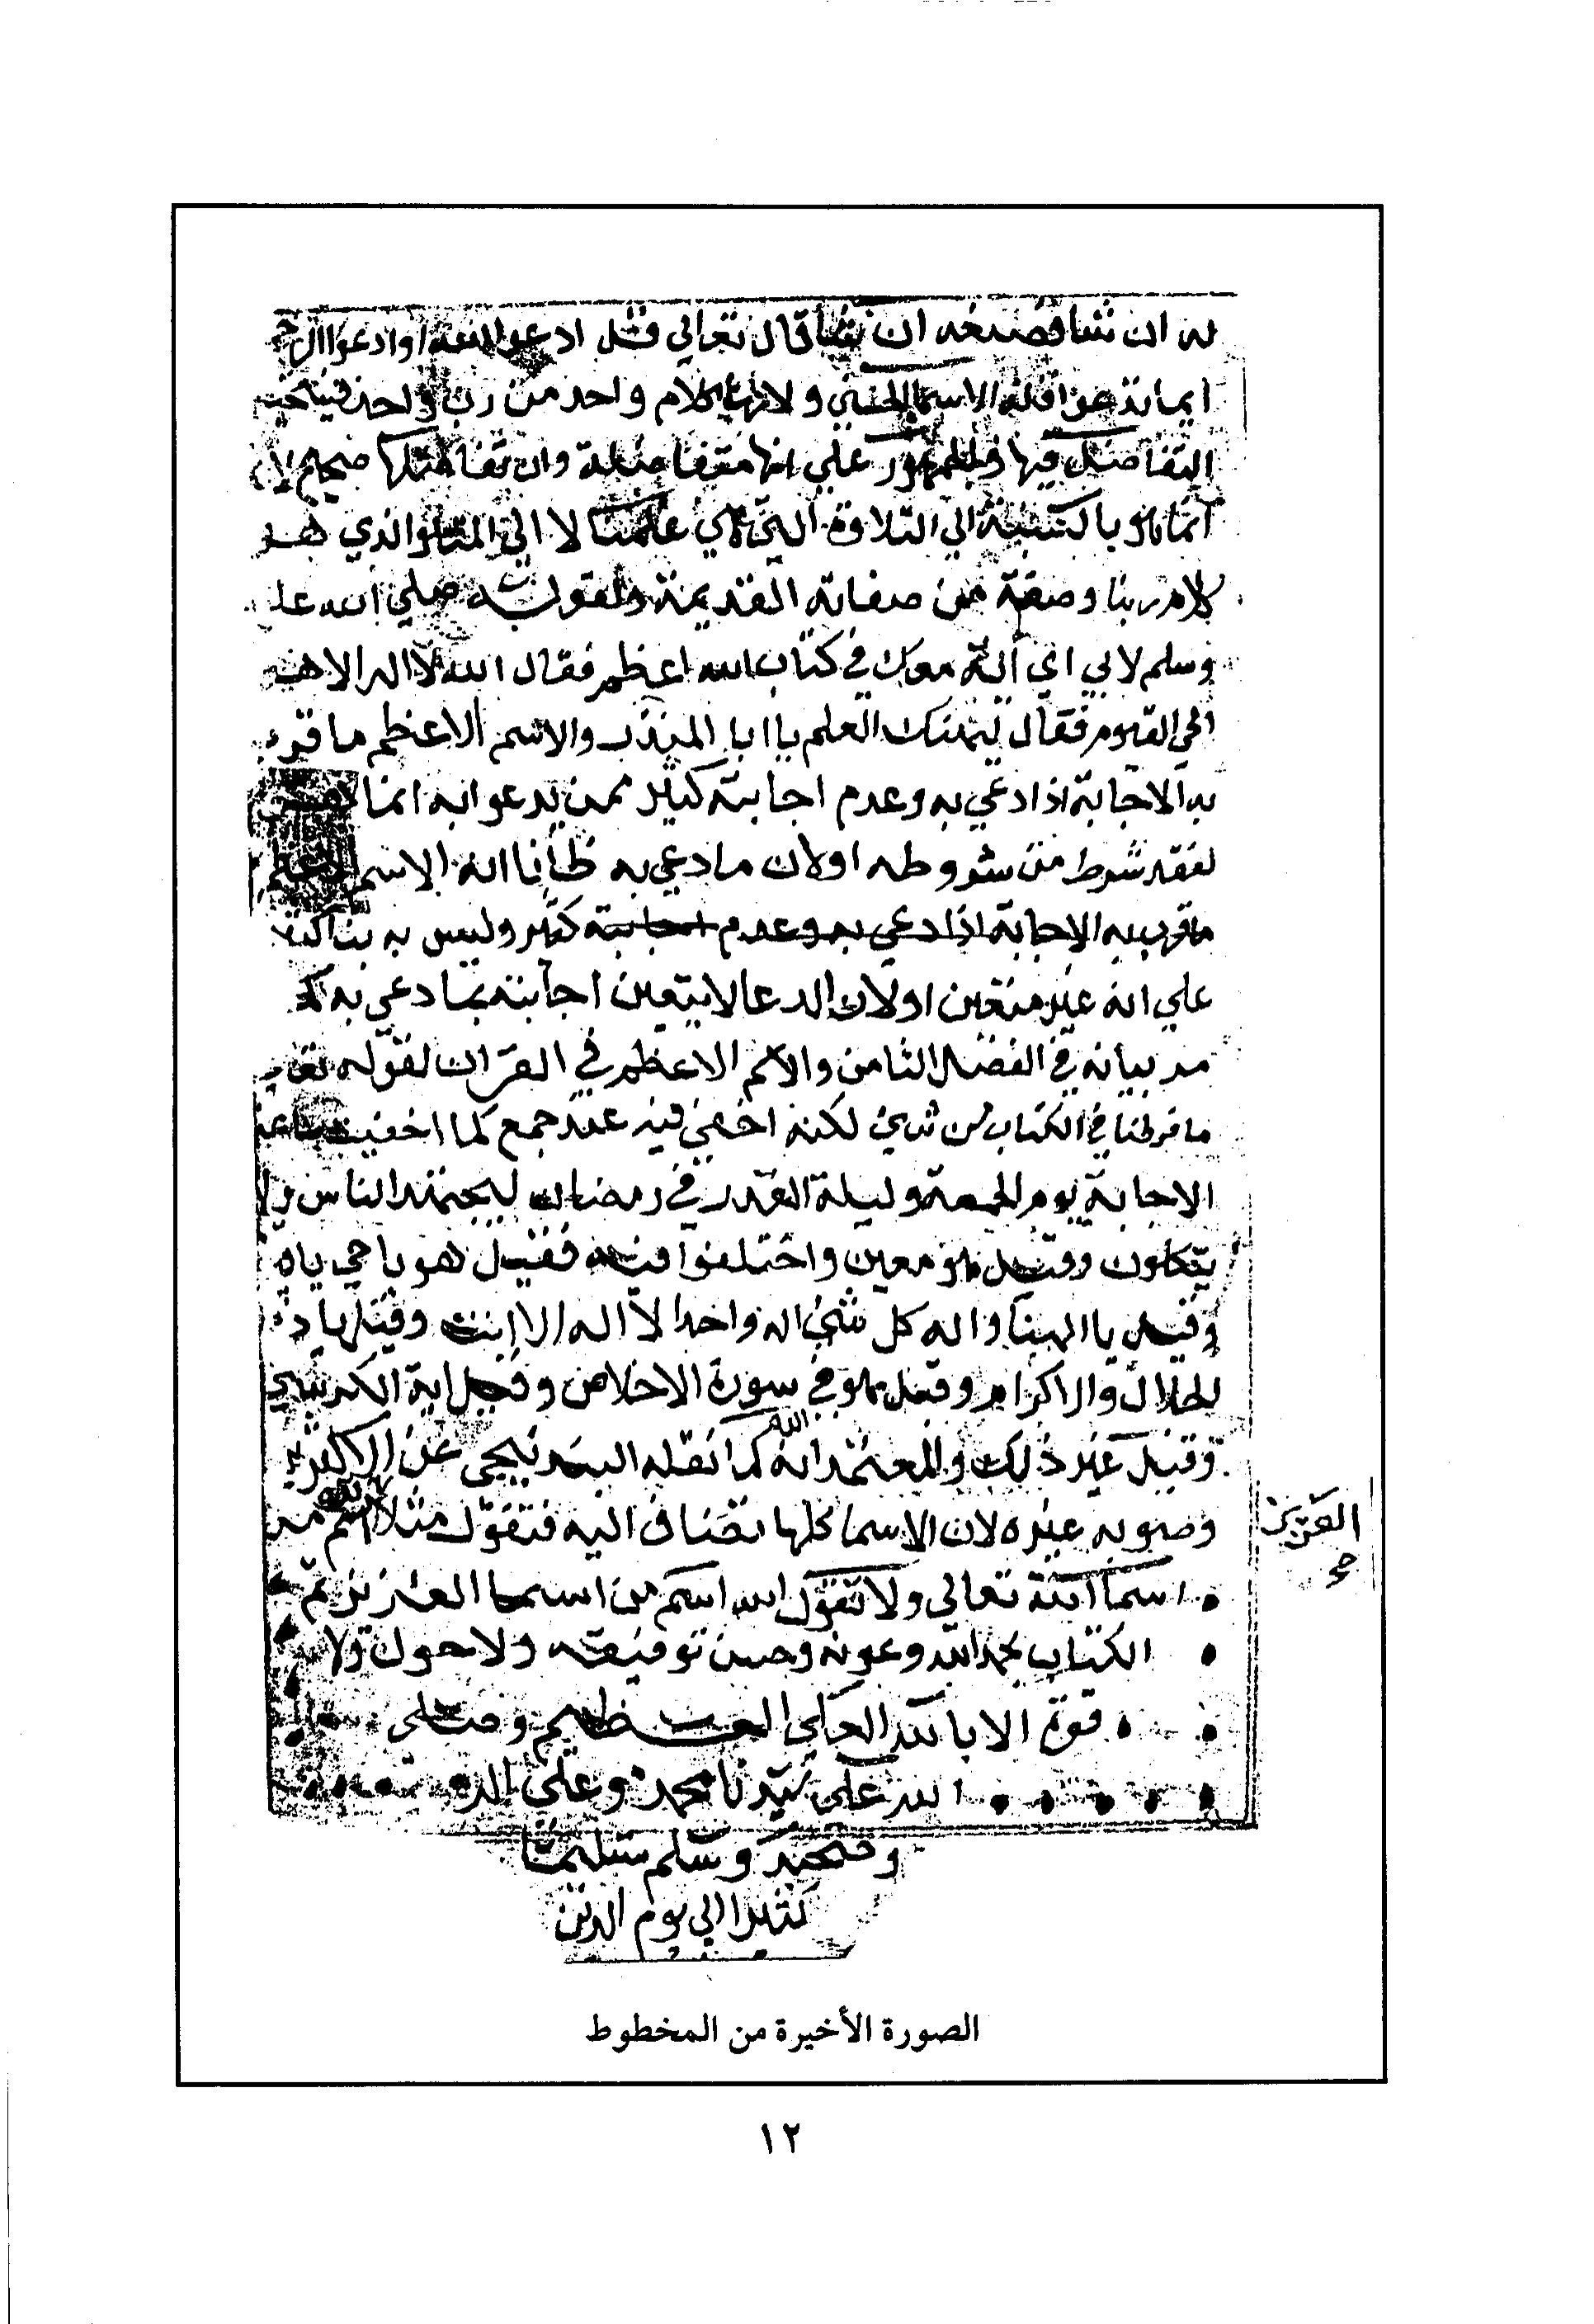 له ان شا قصيغه ان شا قال تعالي قل ادعوا الله اوادعوا الرح
ايما تدعوا فله الاسما الحسني ولانها كلام واحد من رب واحد
التفاضل فيها فالجمهور علي انها متفاضلة وان تفاضلها صحيح لان
انما هو بالنسبة الي التلاوة التي هي علمنا لا الي المتلو الذي هو
كلام ربنا وصفة من صفاته القديمة ولقوله صلي الله علي
وسلم لابي اي اية معك في كتاب الله اعظم فقال الله لا اله الا هو
الحي القيوم فقال ليهنك العلم يا ابا المنذر والاسم الاعظم ما قرب
به الاجابة اذا دعي به وعدم اجابة كثير ممن يدعوا به انما
لفقد شرط من شروطه اولان ما دعي به ظانا انه الاسم الاعظم
ما قرب به الاجابة اذا دعي به وعدم اجابة كثير وليس به بنا
علي انه غير متعين اولان الدعا لا يتعين اجابته بما دعي به كما
مر بيانه في الفصل الثامن والاسم الاعظم في القران لقوله تعالي
ما فرطنا في الكتاب من شيء لكنه اخفي فيه عند جمع كما اخفيت ساعة
الاجابة يوم الجمعة وليلة القدر في رمضان ليجتهد الناس ولا
يتكلون وقيل هو معين واختلفوا فيه فقيل هو يا حي يا
وقيل يا الهنا واله كل شيء اله واحدا لا اله الا انت وقيل يا ذا
الجلال والاكرام وقيل هو في سورة الاخلاص وقيل اية الكرسي
وقيل غير ذلك والمعتمد انه الله كما نقله البندنيجي عن الاكثرين
وصوبه غيره لان الاسما كلها تضاف اليه فتقول مثلا العزيز اسم من
اسما الله تعالي ولا تقول الله اسم من اسما العزيز تم
الكتاب بحمد الله وعونه وحسن توفيقه ولا حول ولا
قوة الا بالله العلي العظيم وصلى
الله على سيدنا محمد وعلى اله
وصحبه وسلم تسليما
كثيرا الي يوم الدين
العزيز
صح
الصورة الأخيرة من المخطوط
١٢